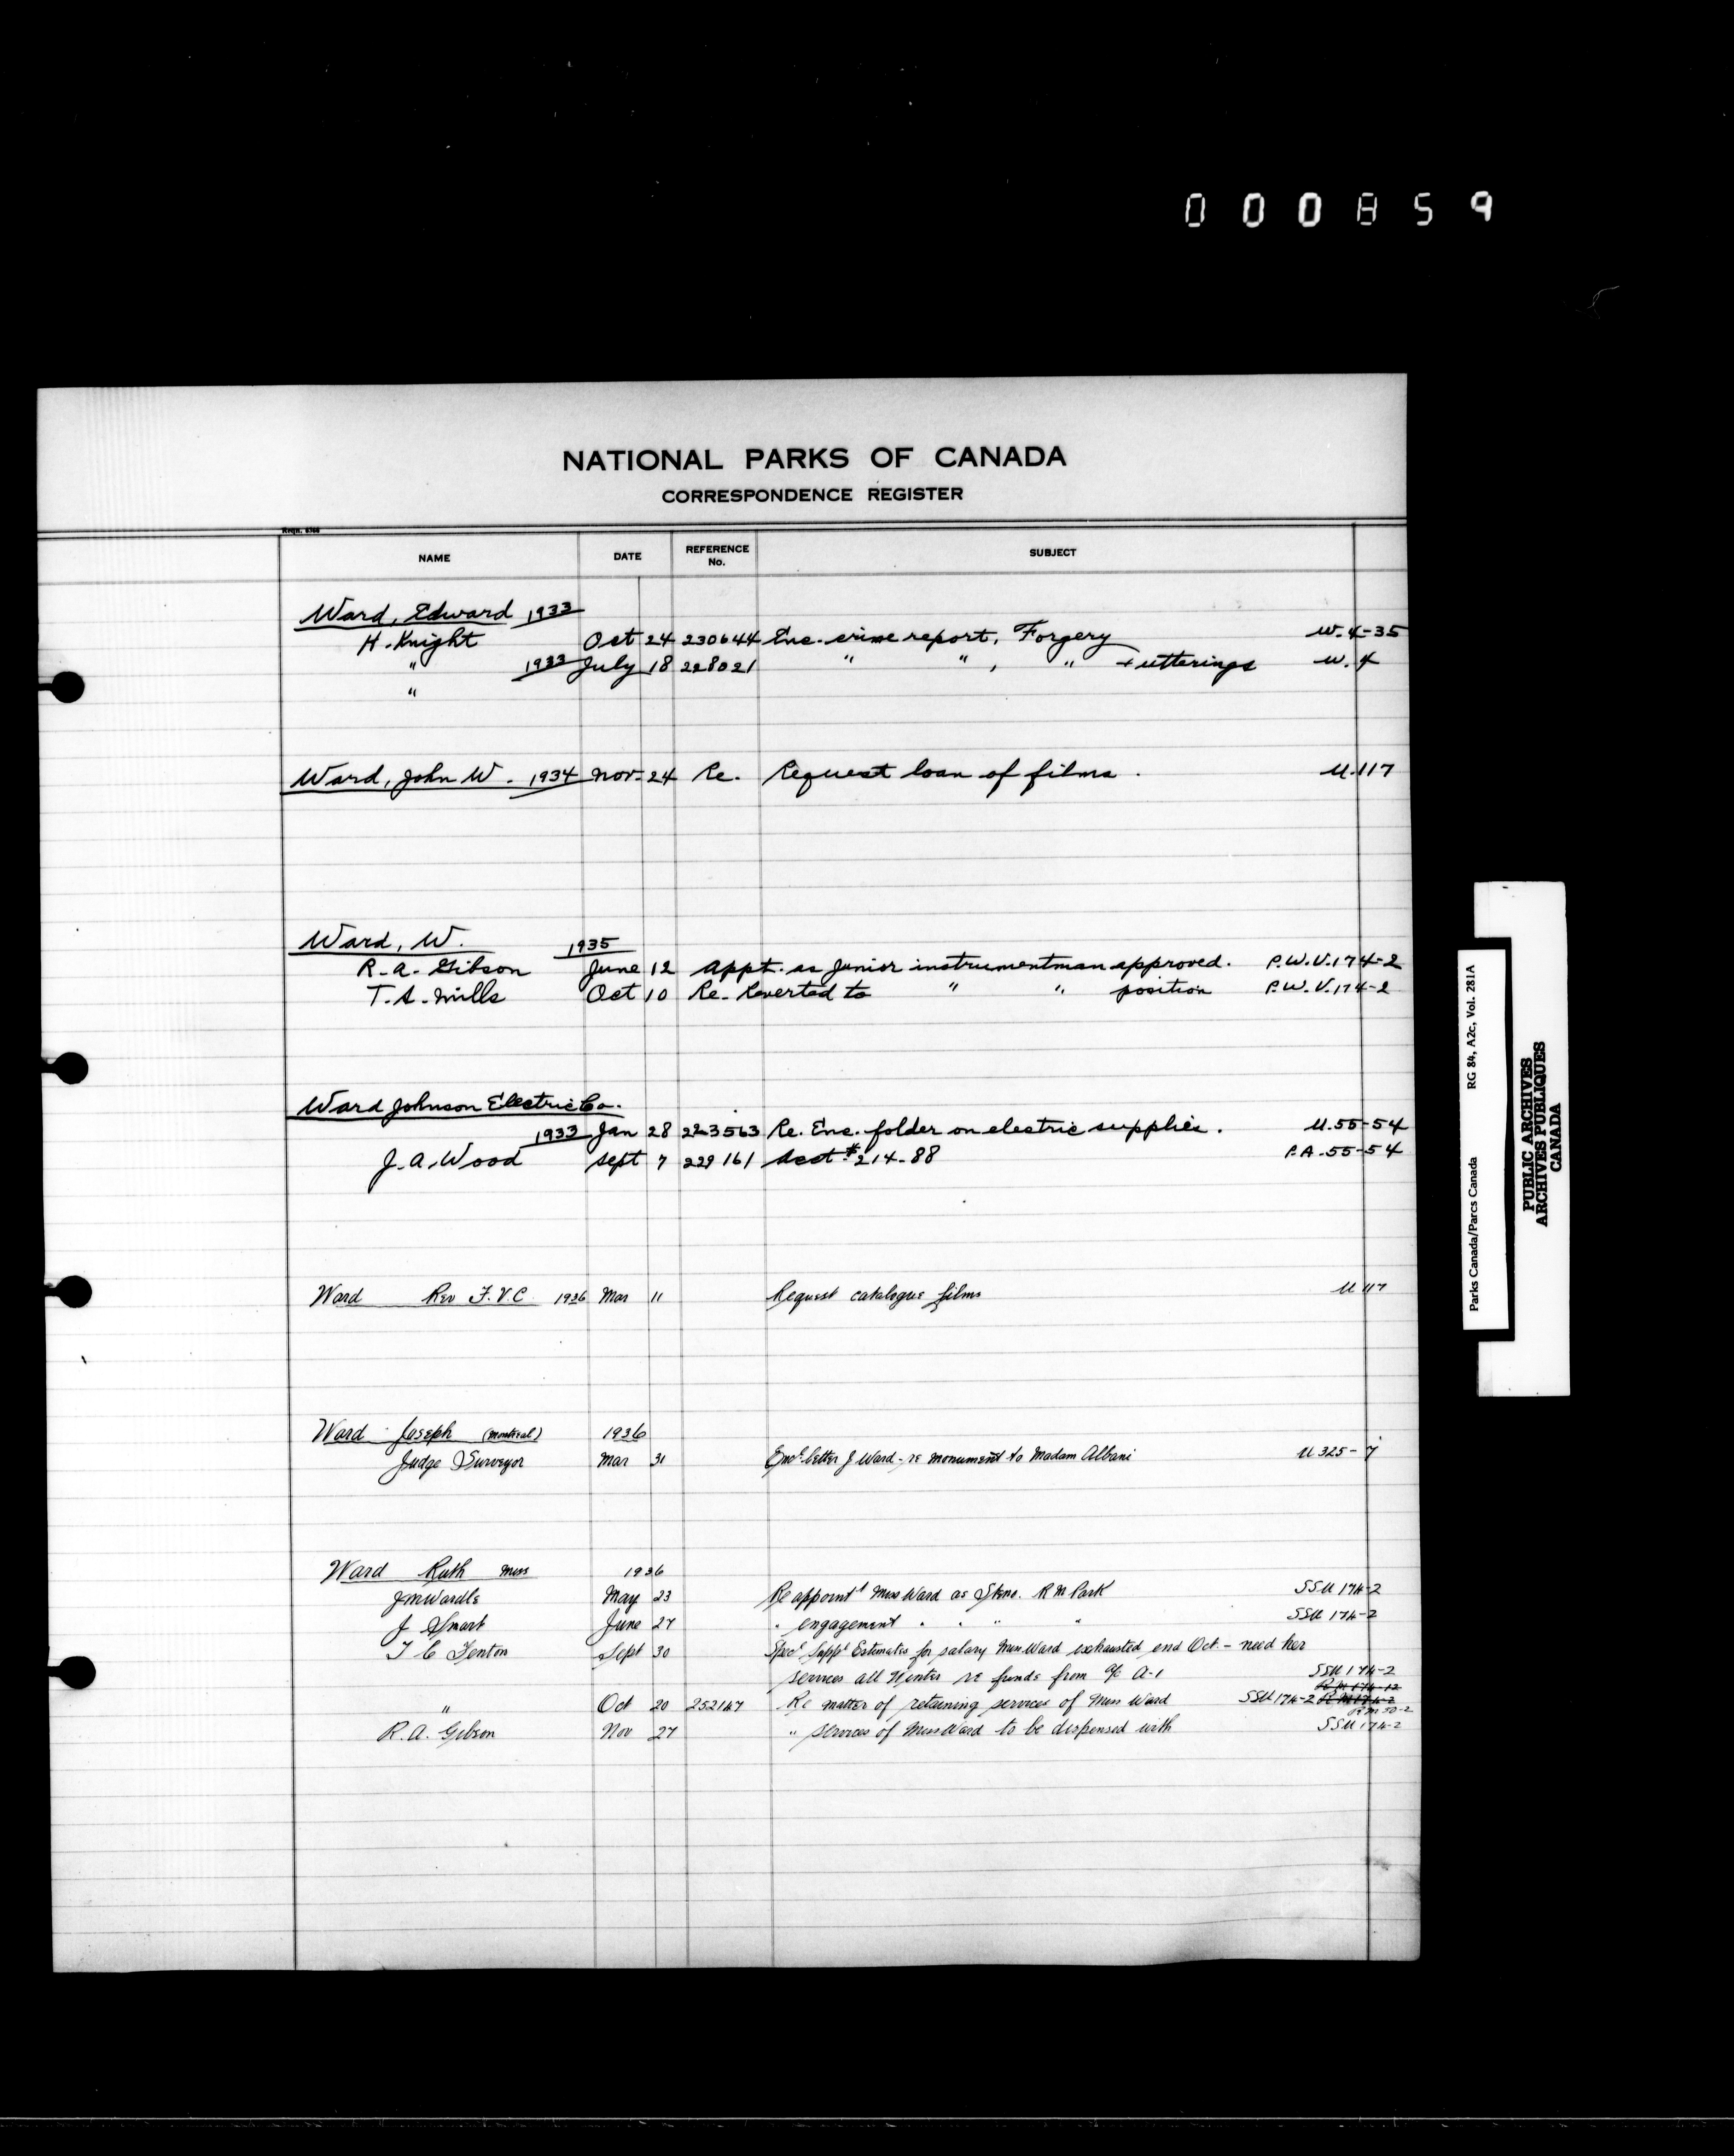 000859
NATIONAL PARKS OF CANADA
CORRESPONDENCE REGISTER
Reqn. 6366
NAME DATE REFERENCE No. SUBJECT
Ward, Edward 1933
H. Knight Oct 24 230644 Enc. crime report, Forgery W. 4-35
" 1933 July 18 228021 " " , " + utterings W. 4
"
Ward, John W. 1934 Nov. 24 Re. Request loan of films. U.117
Ward, W. 1935
R. A. Gibson June 12 Appt. as Junior instrumentman approved. P.W.V.174-2
T. S. Mills Oct 10 Re. Reverted to " " position P.W.V.174-2
Ward Johnson Electric Co.
1933 Jan 28 223563 Re. Enc. folder on electric supplies. U.55-54
J. A. Wood Sept 7 229161 Acct #214.88 P.A.-55-54
Ward Rev F.V.C. 1936 Mar 11 Request catalogue films U 117
Ward Joseph (Montreal) 1936
Judge Surveyor Mar 31 Encl letter J Ward - re monument to Madam Albani U 325-7
Ward Ruth Miss 1936
J M Wardle May 23 Re appointt Miss Ward as Steno. R M Park SSU 174-2
J Smart June 27 " engagement " " " " SSU 174-2
T C Fenton Sept 30 Specl Suppl Estimates for salary Miss Ward exhausted end Oct - need her
services all Winter re funds from % A-1 SSU 174-2
R M 174-12
" Oct 20 252147 Re matter of retaining services of Miss Ward SSU 174-2 R M 174-2
R M 50-2
R. A. Gibson Nov 27 " services of Miss Ward to be dispensed with SSU 174-2
Parks Canada/Parcs Canada RG 84, A2c, Vol. 281A
PUBLIC ARCHIVES
ARCHIVES PUBLIQUES
CANADA